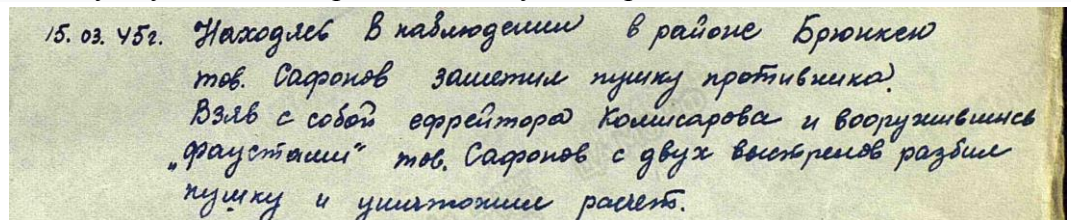 15. 03. 45г. Находясь в наблюдении в районе Брюнкен
тов. Сафонов заметил пушку противника.
Взяв с собой ефрейтора Комисарова и вооружившись
„фаустами“ тов. Сафонов с двух выстрелов разбил
пушку и уничтожил расчет.